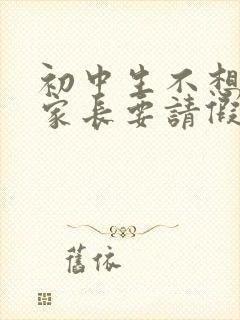 初中生不想
家长要請假
舊依